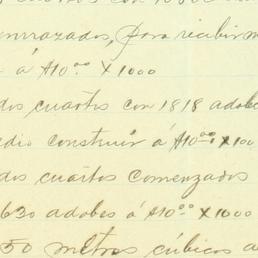 enrrazados, para recibir m
à $10.00 X 1000
dos cuartos con 1818 adobe
edio construir á $10.00 X 100
dos cuartos comenzados
630 adobes á $10.00 X 1000
50 metros cúbicos a